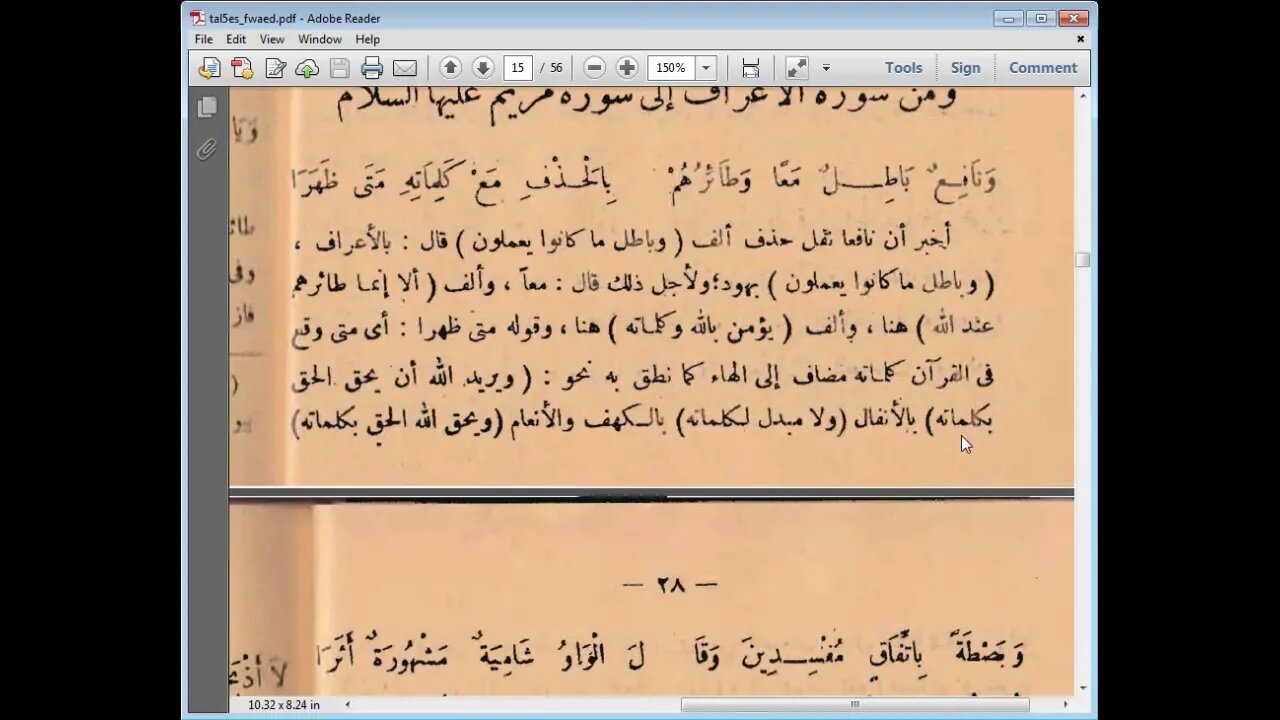 tal5es_fwaed.pdf - Adobe Reader
File Edit View Window Help
15 / 56 150% Tools Sign Comment
ومن سورة الأعراف إلى سورة مريم عليها السلام
وَنَافِعٌ بَاطِلٌ مَعًا وَطَائِرُهُمْ بِالْحَذْفِ مَعْ كَلِمَاتِهِ مَتَى ظَهَرَا
أخبر أن نافعا نقل حذف ألف ( وباطل ما كانوا يعملون ) قال : بالأعراف ،
( وباطل ما كانوا يعملون ) بهود؛ ولأجل ذلك قال : معاً ، وألف ( ألا إنما طائرهم
عند الله ) هنا ، وألف ( يؤمن بالله وكلماته ) هنا ، وقوله متى ظهرا : أى متى وقع
فى القرآن كلماته مضاف إلى الهاء كما نطق به نحو : ( ويريد الله أن يحق الحق
بكلماته) بالأنفال (ولا مبدل لكلماته) بالكهف والأنعام (ويحق الله الحق بكلماته)
— ٢٨ —
وَبَصْطَةً بِاتِّفَاقٍ مُفْسِدِينَ وَقَا لَ الْوَاوُ شَامِيَةٌ مَشْهُورَةٌ أَثَرَا
10.32 x 8.24 in